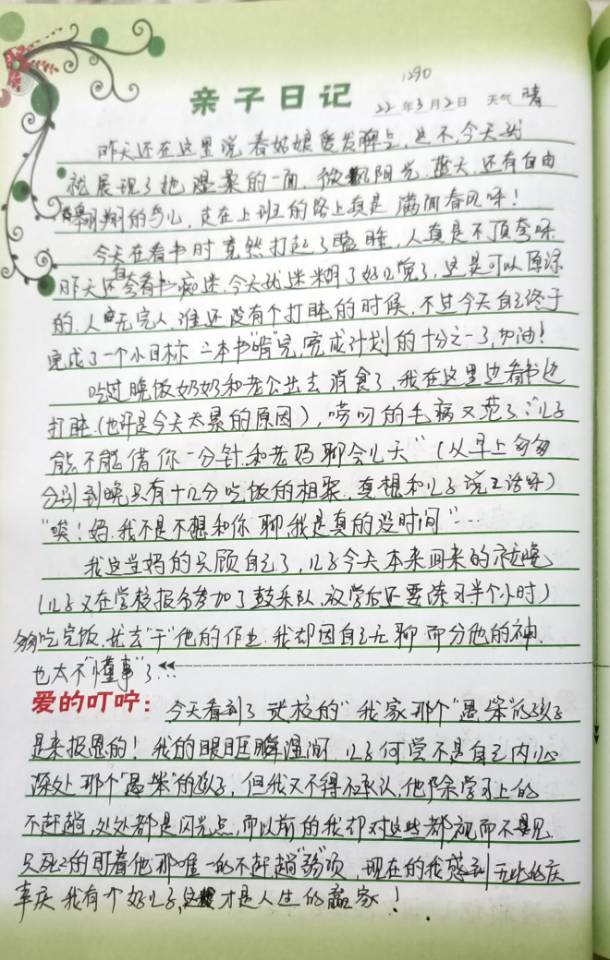 1290
亲子日记 22年3月2日 天气 晴
昨天还在这里说春姑娘爱发脾气,这不,今天就
就展现了她温柔的一面,微风阳光,蓝天,还有自由
翱翔的鸟儿,走在上班的路上真是满面春风呀!
今天在看书时竟然打起了瞌睡,人真是不顶夸呀
昨天还自夸看书痴迷,今天就迷糊了好几觉了,这是可以原谅
的,人无完人,谁还没有个打盹的时候,不过今天自己终于
完成了一个小目标,二本书"啃"完,完成计划的十分之一了,加油!
吃过晚饭奶奶和老公出去消食了,我在这里边看书边
打盹(也许是今天太累的原因),唠叨的毛病又犯了:"儿子
能不能借你一分针,和老妈聊会儿天"(从早上匆匆
分别到晚只有十几分吃饭的相聚,真想和儿子说上话呀)
"唉!妈,我不是不想和你聊,我是真的没时间"…
我这当妈的只顾自己了,儿子今天本来回来的就晚
(儿子又在学校报名参加了鼓乐队,放学后还要练习半个小时)
匆匆吃完饭,就去"干"他的作业,我却因自己无聊而分他的神,
也太不"懂事"了…
爱的叮咛: 今天看到了 校的"我家那个"愚笨"的孩子
是来报恩的!我的眼眶瞬湿润,儿子何尝不是自己内心
深处那个"愚笨"的孩子,但我又不得不承认,他除学习上的
不赶趟,处处都是闪光点,而以前的我却对这些都视而不见
只死死的盯着他那唯一的不赶趟"弱"项,现在的我感到无比的庆
幸庆我有个好儿子,这才是人生的赢家!